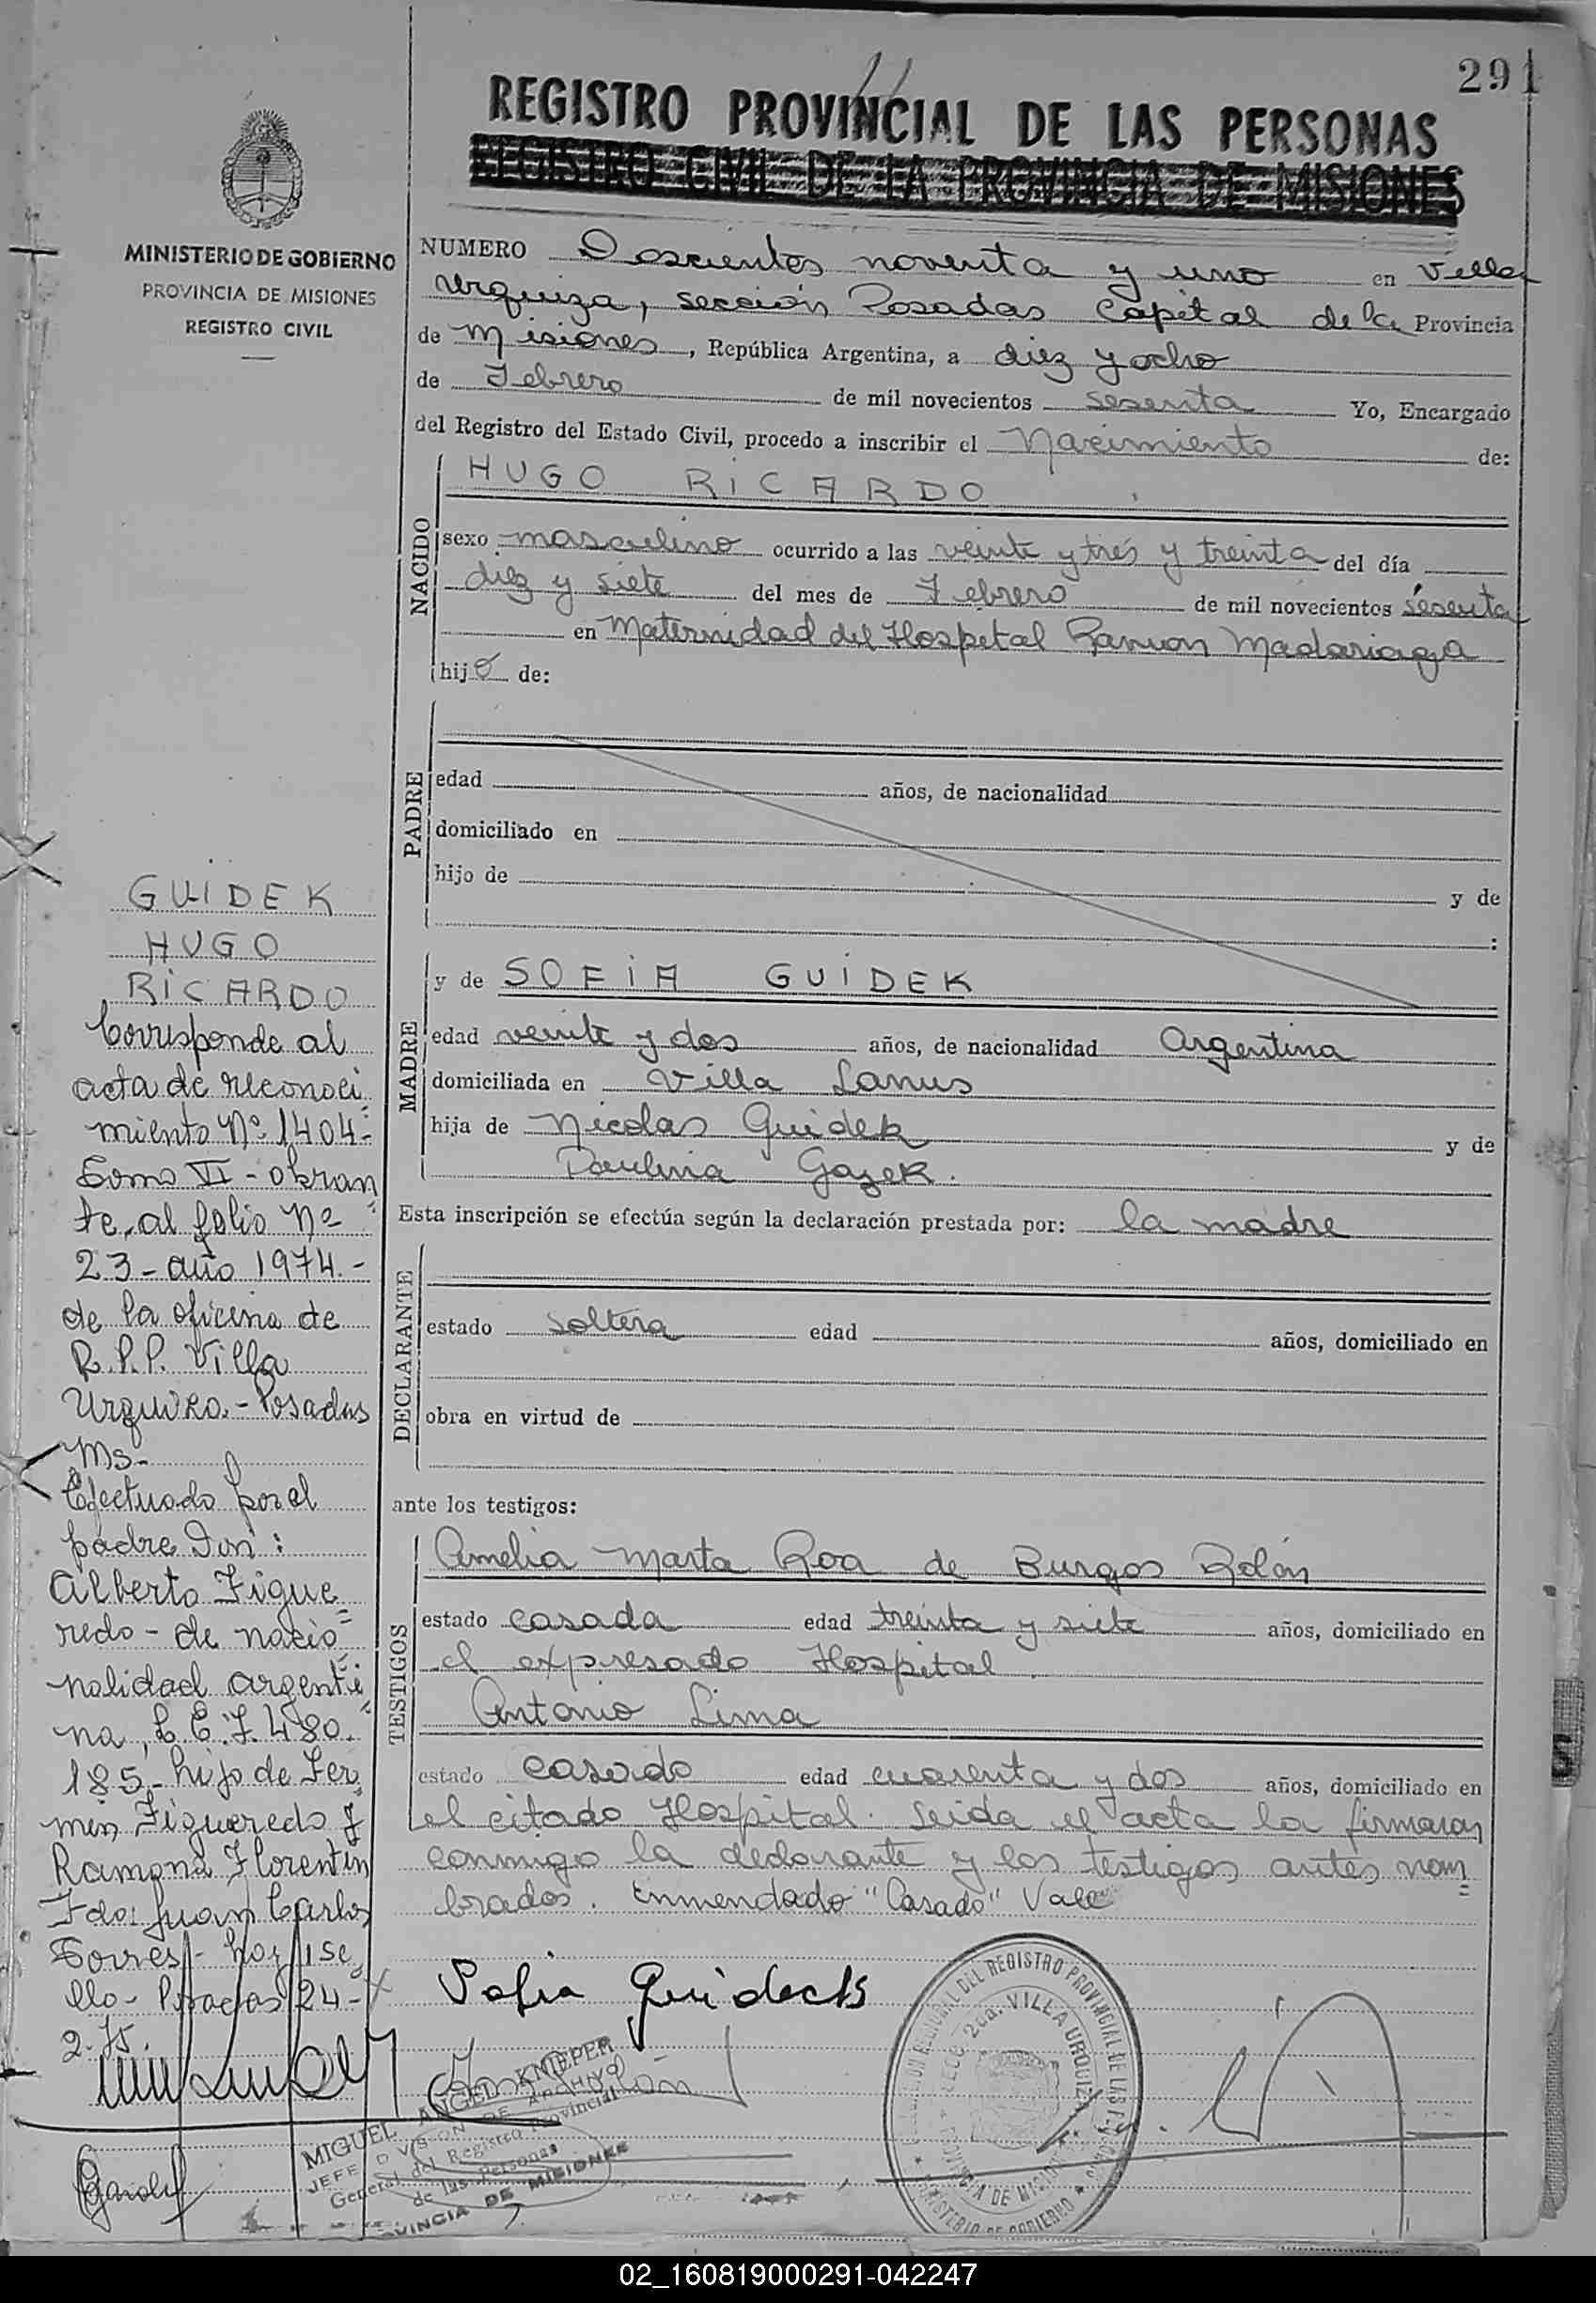 291
REGISTRO PROVINCIAL DE LAS PERSONAS
REGISTRO CIVIL DE LA PROVINCIA DE MISIONES
MINISTERIO DE GOBIERNO
PROVINCIA DE MISIONES
REGISTRO CIVIL
NUMERO Doscientos noventa y uno en Villa
Urquiza, sección Posadas Capital de la Provincia
de Misiones, República Argentina, a diez y ocho
de Febrero de mil novecientos sesenta Yo, Encargado
del Registro del Estado Civil, procedo a inscribir el Nacimiento de:
NACIDO
HUGO RICARDO
sexo masculino ocurrido a las veinte y tres y treinta del día
diez y siete del mes de Febrero de mil novecientos sesenta
en Maternidad del Hospital Ramon Madariaga
hijo de:
PADRE
edad años, de nacionalidad
domiciliado en
hijo de y de
:
MADRE
y de SOFIA GUIDEK
edad veinte y dos años, de nacionalidad Argentina
domiciliada en Villa Lanus
hija de Nicolas Guidek y de
Paulina Gazek.
Esta inscripción se efectúa según la declaración prestada por: la madre
DECLARANTE
estado soltera edad años, domiciliado en
obra en virtud de
ante los testigos:
TESTIGOS
Amelia Marta Roa de Burgos Rolón
estado casada edad treinta y siete años, domiciliado en
el expresado Hospital
Antonio Lima
estado casado edad cuarenta y dos años, domiciliado en
el citado Hospital. Leida el acta la firmaran
conmigo la declarante y los testigos antes nom=
brados. Enmendado "Casado" Vale
Sofia Guideck
GUIDEK
HUGO
RICARDO
Corresponde al
acta de reconoci=
miento Nº 1404-
Tomo VI - obran=
te al folio Nº
23 - año 1974.-
de la oficina de
R.P.P. Villa
Urquiza.- Posadas
Ms-
Efectuado por el
padre Don:
Alberto Figue=
redo - de nacio=
nalidad argenti=
na, L.E. 7.480.
185.- hijo de Fer=
min Figueredo y
Ramona Florentin
Fdo: Juan Carlos
Torres - hay 1 se=
llo - Posadas 24-
2-75.
MIGUEL ANGEL KNIEPER
JEFE DIVISION DE ARCHIVO
General del Registro Provincial
de las Personas
PROVINCIA DE MISIONES
DELEGACION REGIONAL DEL REGISTRO PROVINCIAL DE LAS PERSONAS
SECC. 2da. VILLA URQUIZA
PROVINCIA DE MISIONES
MINISTERIO DE GOBIERNO
02_160819000291-042247